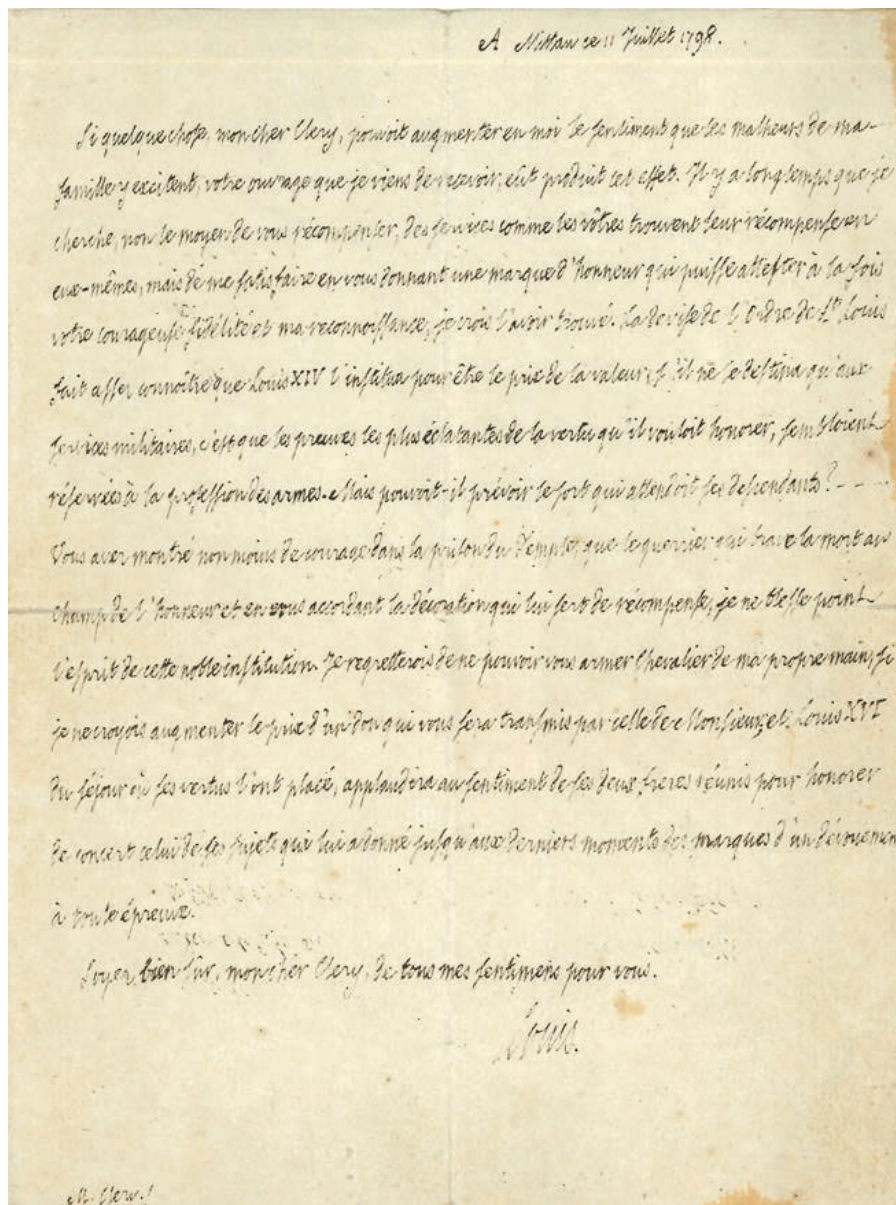 A Mittau ce 11 Juillet 1798.
Si quelque chose, mon cher Clery, pouvoit augmenter en moi le sentiment que les malheurs de ma
famille y excitent, votre ouvrage que je viens de recevoir, eût produit cet effet. Il y a longtemps que je
cherche, non le moyen de vous récompenser, des services comme les vôtres trouvent leur récompense en
eux-mêmes, mais de me satisfaire en vous donnant une marque d'honneur qui puisse attester à la fois
votre courageuse fidélité et ma reconnoissance, je crois l'avoir trouvé. La devise de l'Ordre de St. Louis
fait assez connoître que Louis XIV l'institua pour être le prix de la valeur, s'il ne le destina qu'aux
services militaires, c'est que les preuves les plus éclatantes de la vertu qu'il vouloit honorer, sembloient
réservées à la profession des armes. Mais pouvoit-il prévoir le sort qui attendoit ses descendants? - - -
Vous avez montré non moins de courage dans la prison du Temple, que le guerrier qui brave la mort au
champ de l'honneur et en vous accordant la décoration qui lui sert de récompense, je ne blesse point
l'esprit de cette noble institution. Je regretterois de ne pouvoir vous armer Chevalier de ma propre main, si
je ne croyois augmenter le prix d'un don qui vous sera transmis par celle de Monsieur, et Louis XVI
du séjour où ses vertus l'ont placé, applaudira au sentiment de ses deux freres réunis pour honorer
de concert celui de ses sujets qui lui a donné jusqu'aux derniers moments des marques d'un dévouemen
à toute épreuve.
Soyez, bien sûr, mon cher Clery, de tous mes sentimens pour vous.
Louis.
M. Clery